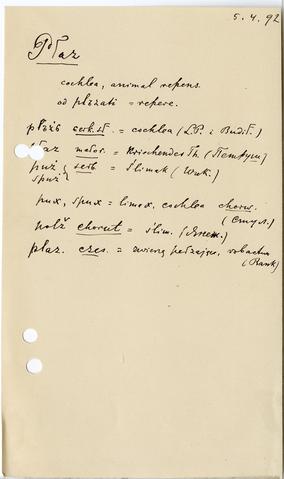 5. 4. 92
Płaz
cochlea, animal repens.
od plъzati = repere.
plъžь serb. sł. = cochlea (L.P. i Budił.)
małor. = Kriechendes Th. (
puž serb. = Ślimak (Wuk.)
spuž
puž, spuž = limax, cochlea chorw.
polž chorut = ślim.
płaz. czes. = zwierzę pełzające, robactwo
(Rank)